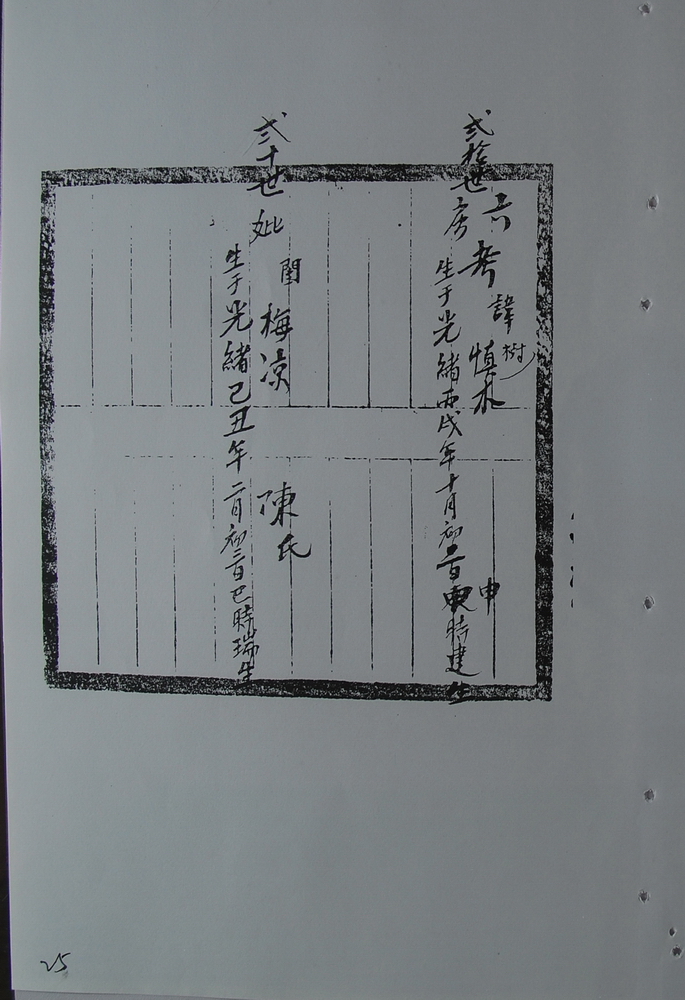 弍拾世房考諱慎樹木
生于光緒丙戌年十月初二日申時建生
弍十世妣閨梅凉陳氏
生于光緒己丑年二月初三日巳時瑞生
25